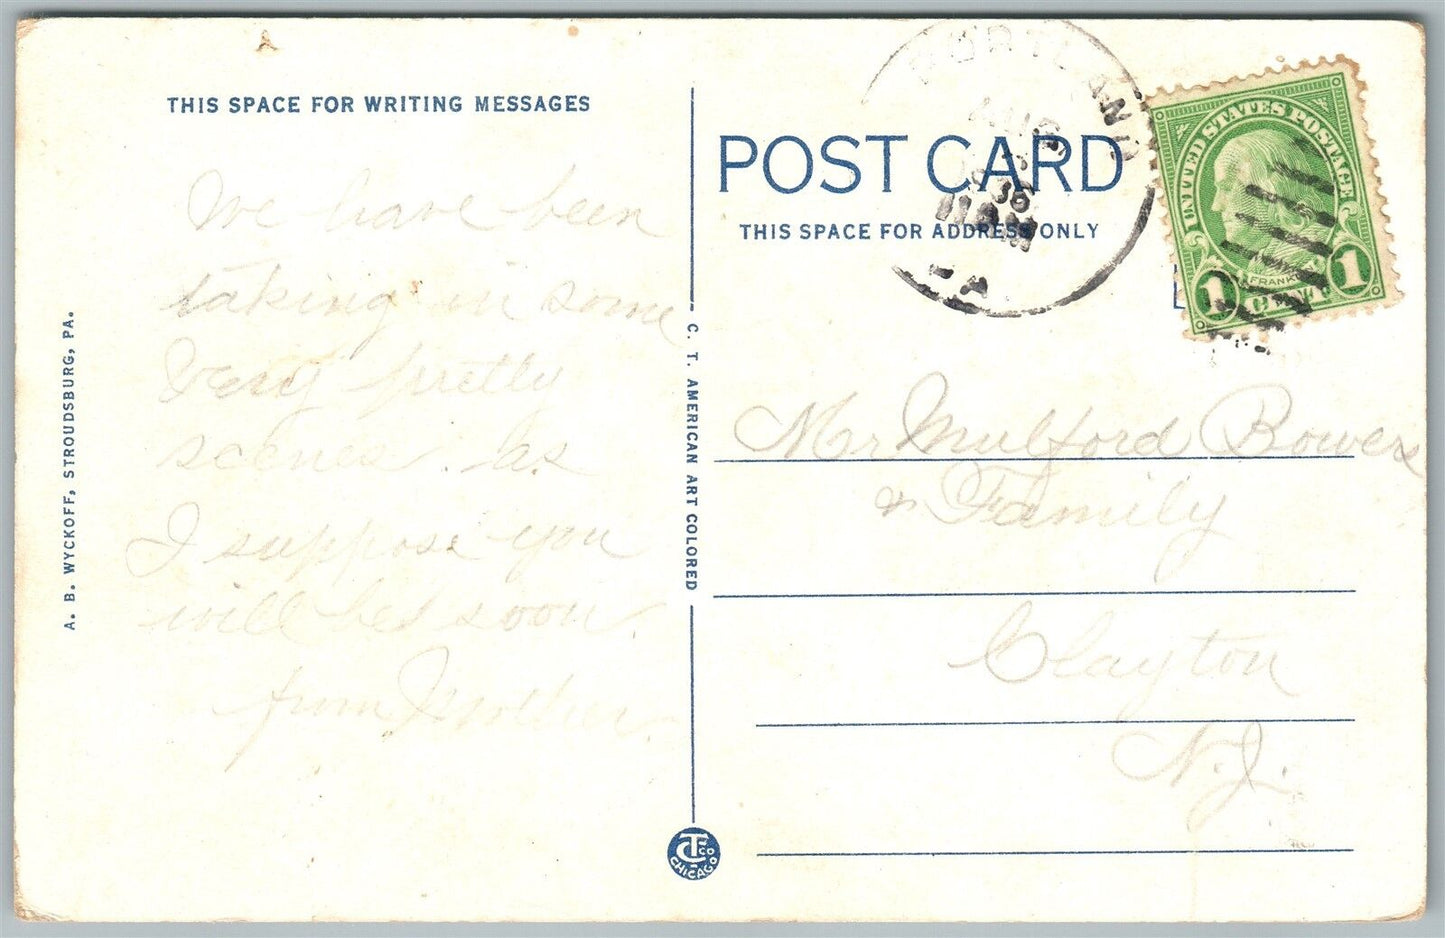 THIS SPACE FOR WRITING MESSAGES
We have been
taking in some
very pretty
scenes. as
I suppose you
will be soon.
from Mother.
A. B. WYCKOFF, STROUDSBURG, PA.
C. T. AMERICAN ART COLORED
CTCO
CHICAGO
POST CARD
THIS SPACE FOR ADDRESS ONLY
PORTLAND
AUG
1936
11AM
PA.
UNITED STATES POSTAGE
FRANKLIN
1 CENT 1
Mr Mulford Bowers
& Family
Clayton
N.J.